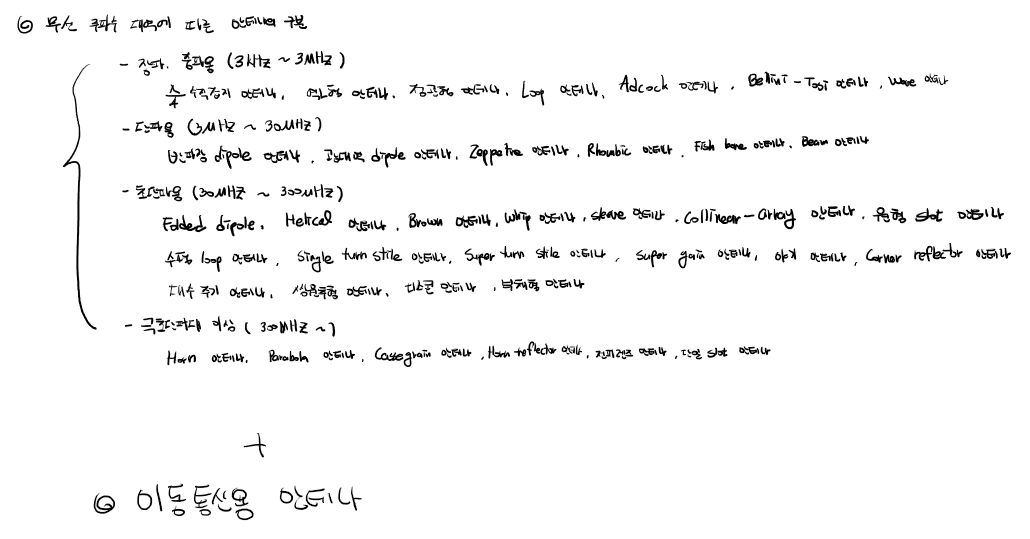 ◎ 무선 주파수 대역에 따른 안테나의 구분
- 장파. 중파용 (3kHz ~ 3MHz)
λ/4 수직접지 안테나, 역L형 안테나, 정관형 안테나, Loop 안테나, Adcock 안테나, Bellini-Tosi 안테나, Wave 안테나
- 단파용 (3MHz ~ 30MHz)
반파장 dipole 안테나, 광대역 dipole 안테나, Zeppeline 안테나, Rhombic 안테나, Fish bone 안테나, Beam 안테나
- 초단파용 (30MHz ~ 300MHz)
Folded dipole, Helical 안테나, Brown 안테나, Whip 안테나, sleeve 안테나, Collinear-array 안테나, 원형 slot 안테나
수평 loop 안테나, Single turn stile 안테나, Super turn stile 안테나, Super gain 안테나, 야기 안테나, Corner reflector 안테나
대수 주기 안테나, 쌍원추형 안테나, 디스콘 안테나, 부채형 안테나
- 극초단파대 이상 ( 300MHz ~)
Horn 안테나, Parabola 안테나, Cassegrain 안테나, Horn reflector 안테나, 전파렌즈 안테나, 단일 slot 안테나
+
◎ 이동통신용 안테나